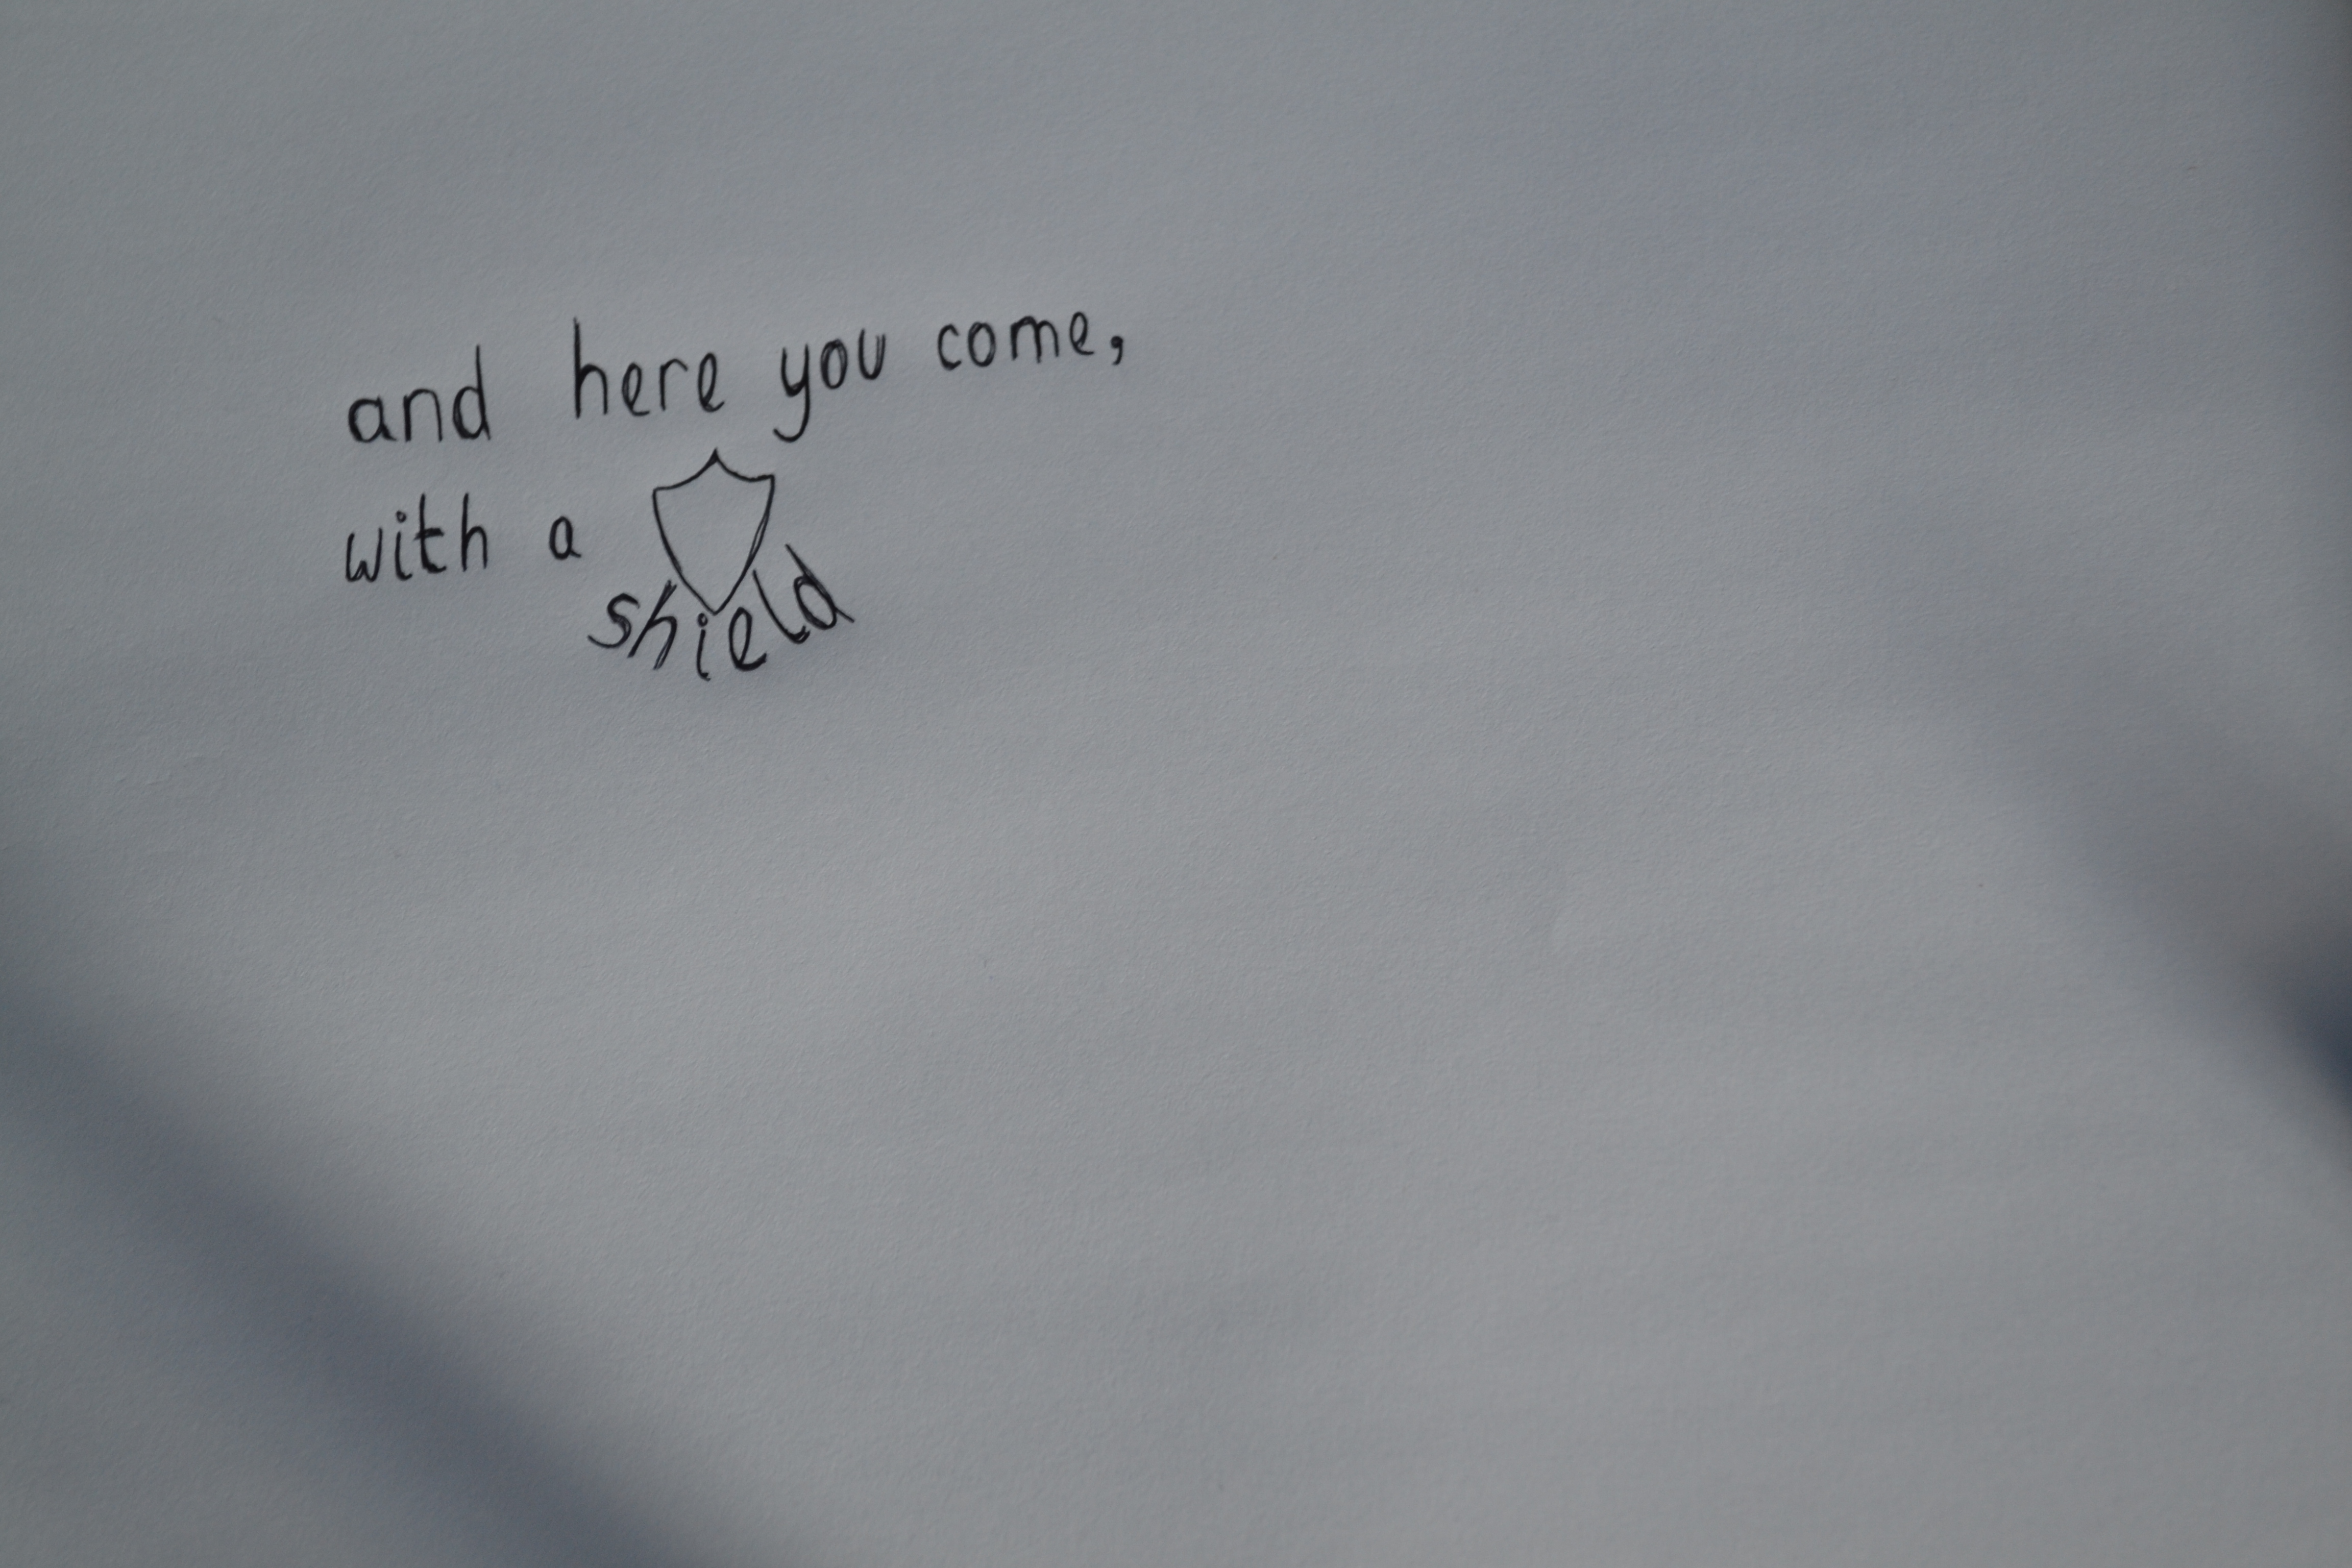 and here you come,
with a
shield